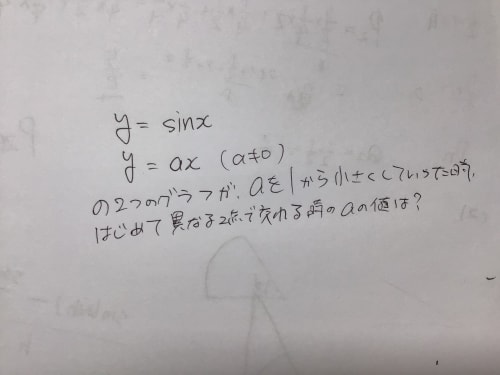 y = sinx
y = ax (a≠0)
の2つのグラフが、aを1から小さくしていった時、
はじめて異なる2点で交わる時のaの値は?